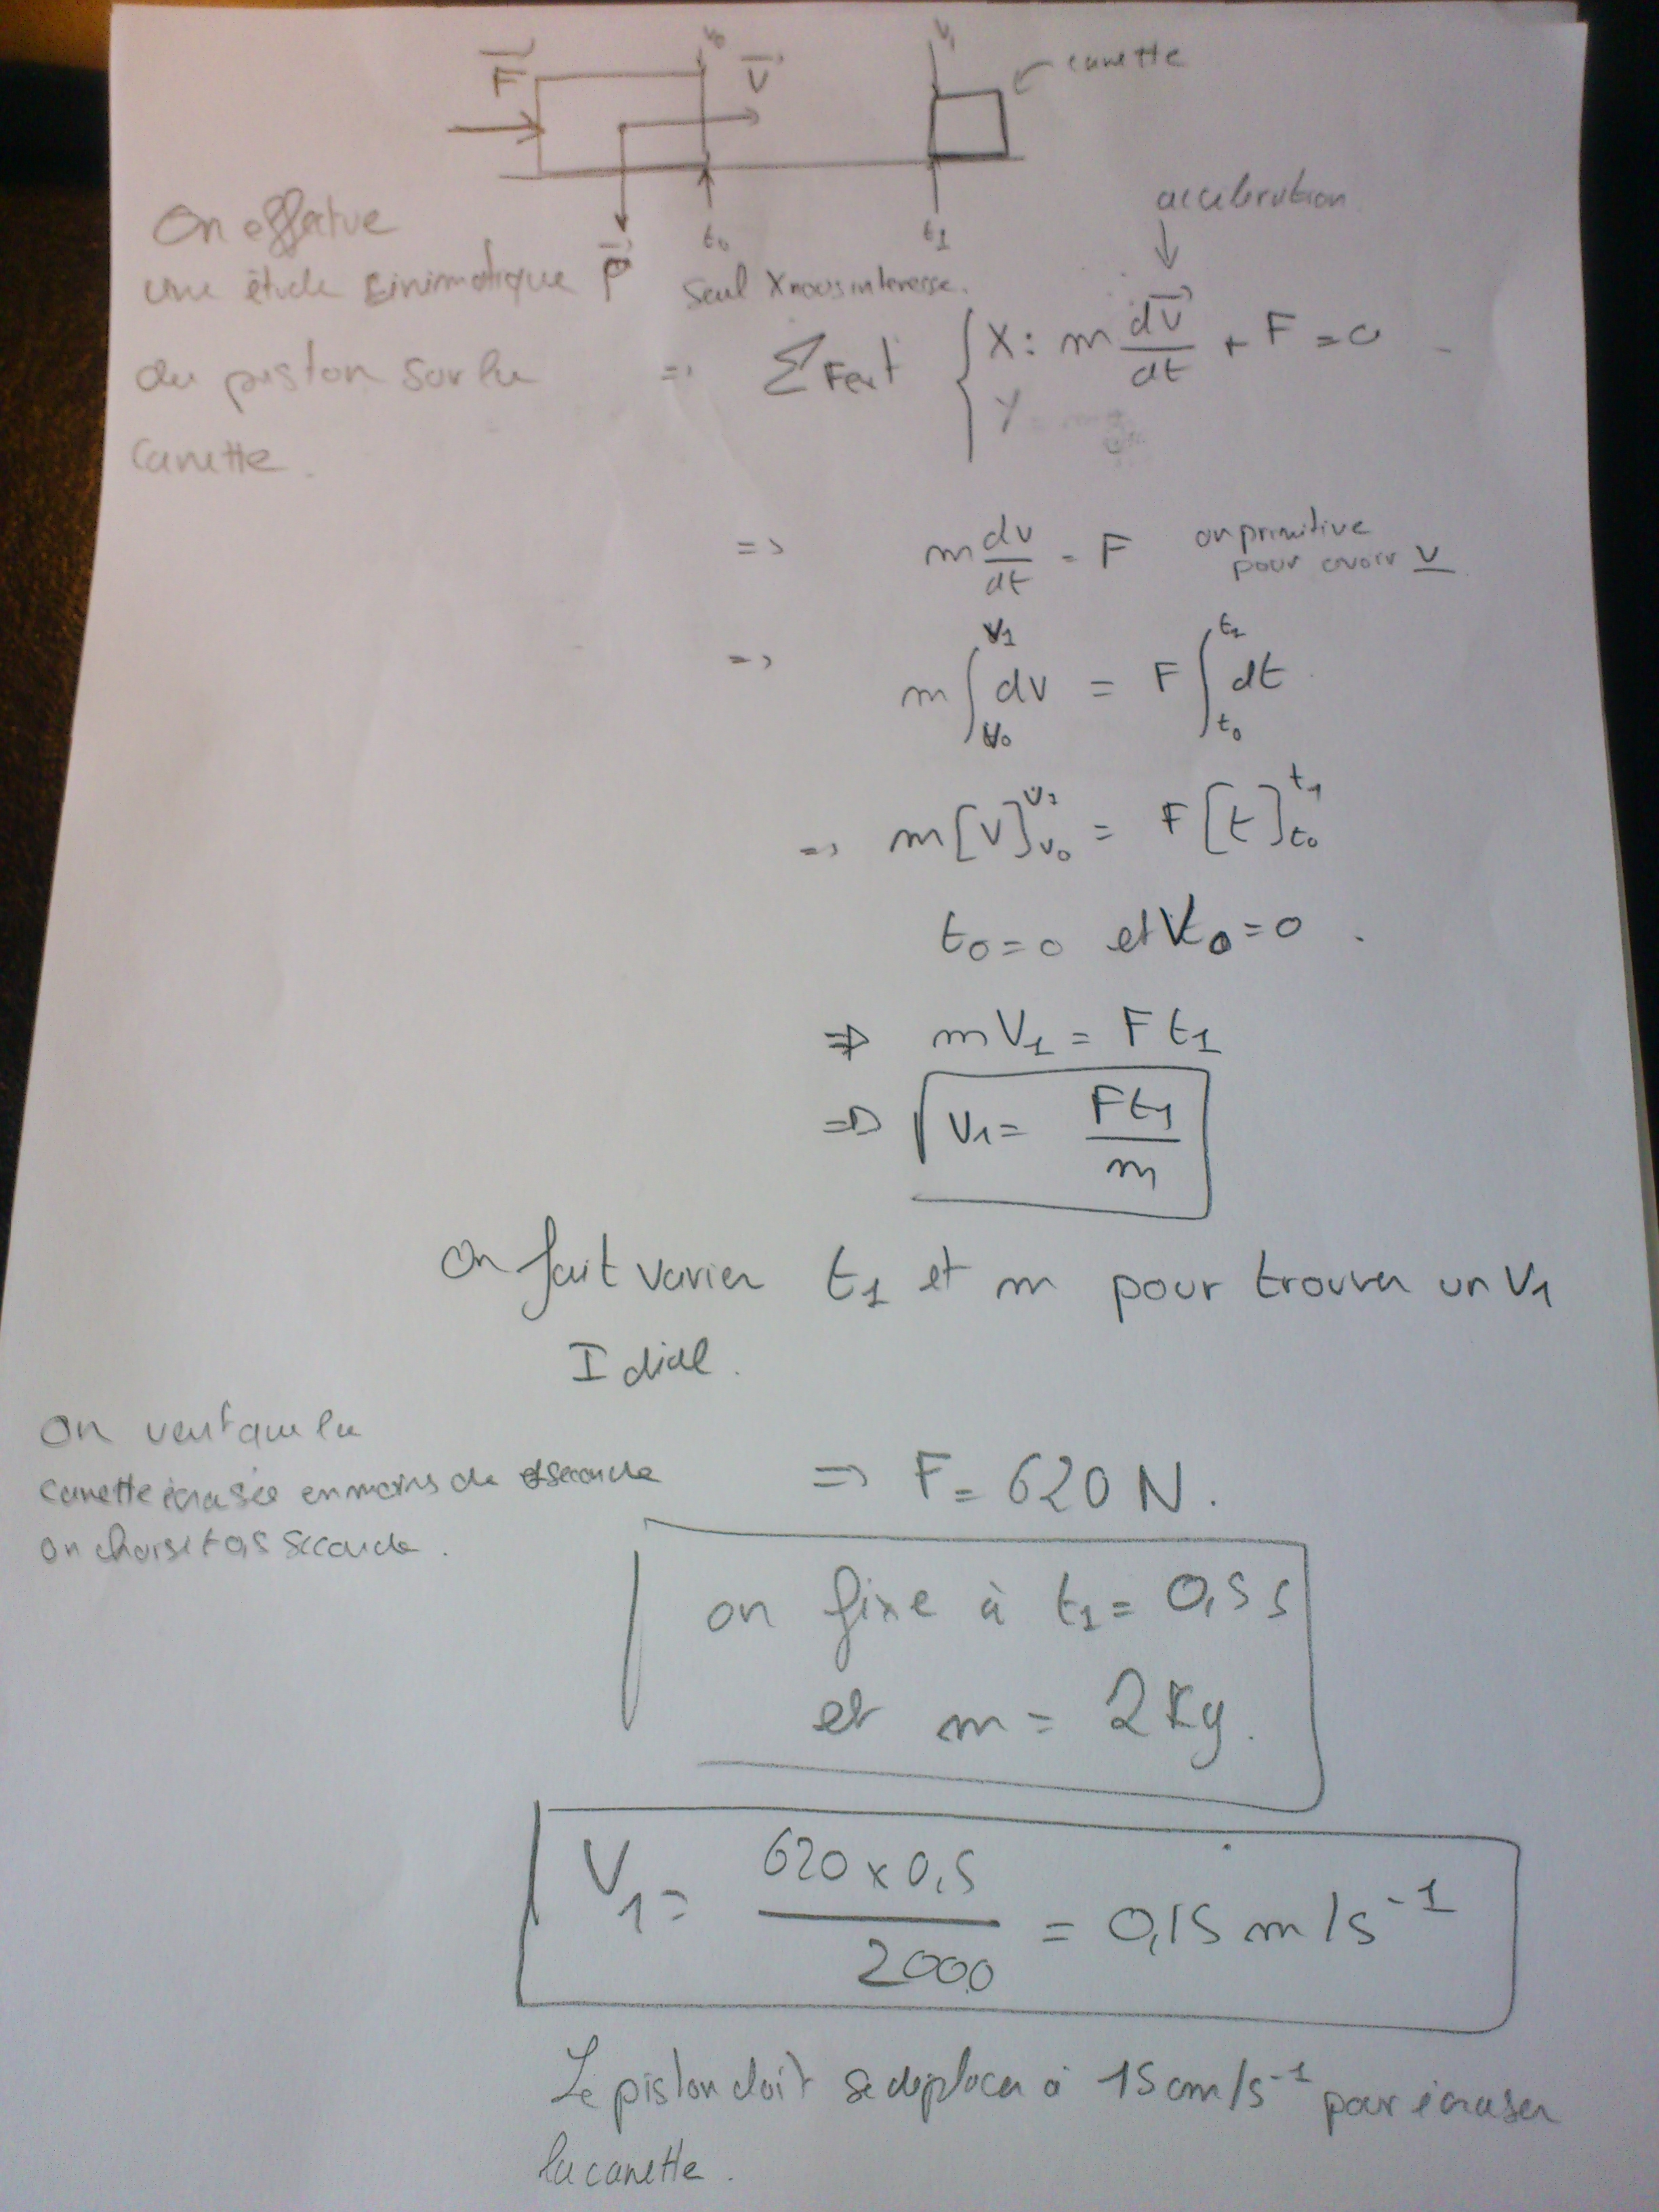 F⃗ v₀ V⃗ v₁ canette
P⃗ t₀ t₁
accélération
On effectue
une étude cinématique
du piston sur la
canette.
Seul X nous interesse.
=> ΣFext { X: m dv⃗/dt + F = 0
Y
=> m dv/dt = F on primitive pour avoir v
=> m ∫_{v₀}^{v₁} dv = F ∫_{t₀}^{t₁} dt
=> m[v]_{v₀}^{v₁} = F[t]_{t₀}^{t₁}
t₀=0 et V₀=0.
=> mV₁ = Ft₁
=> V₁ = Ft₁/m
On fait varier t₁ et m pour trouver un V₁
Idéal.
On veut que la
canette écrasée en moins de seconde
on choisit 0,5 seconde.
=> F = 620 N.
on fixe à t₁ = 0,5 s
et m = 2 Kg.
V₁ = 620 x 0,5 / 2000 = 0,15 m/s⁻¹
Le piston doit se déplacer à 15 cm/s⁻¹ pour écraser
la canette.